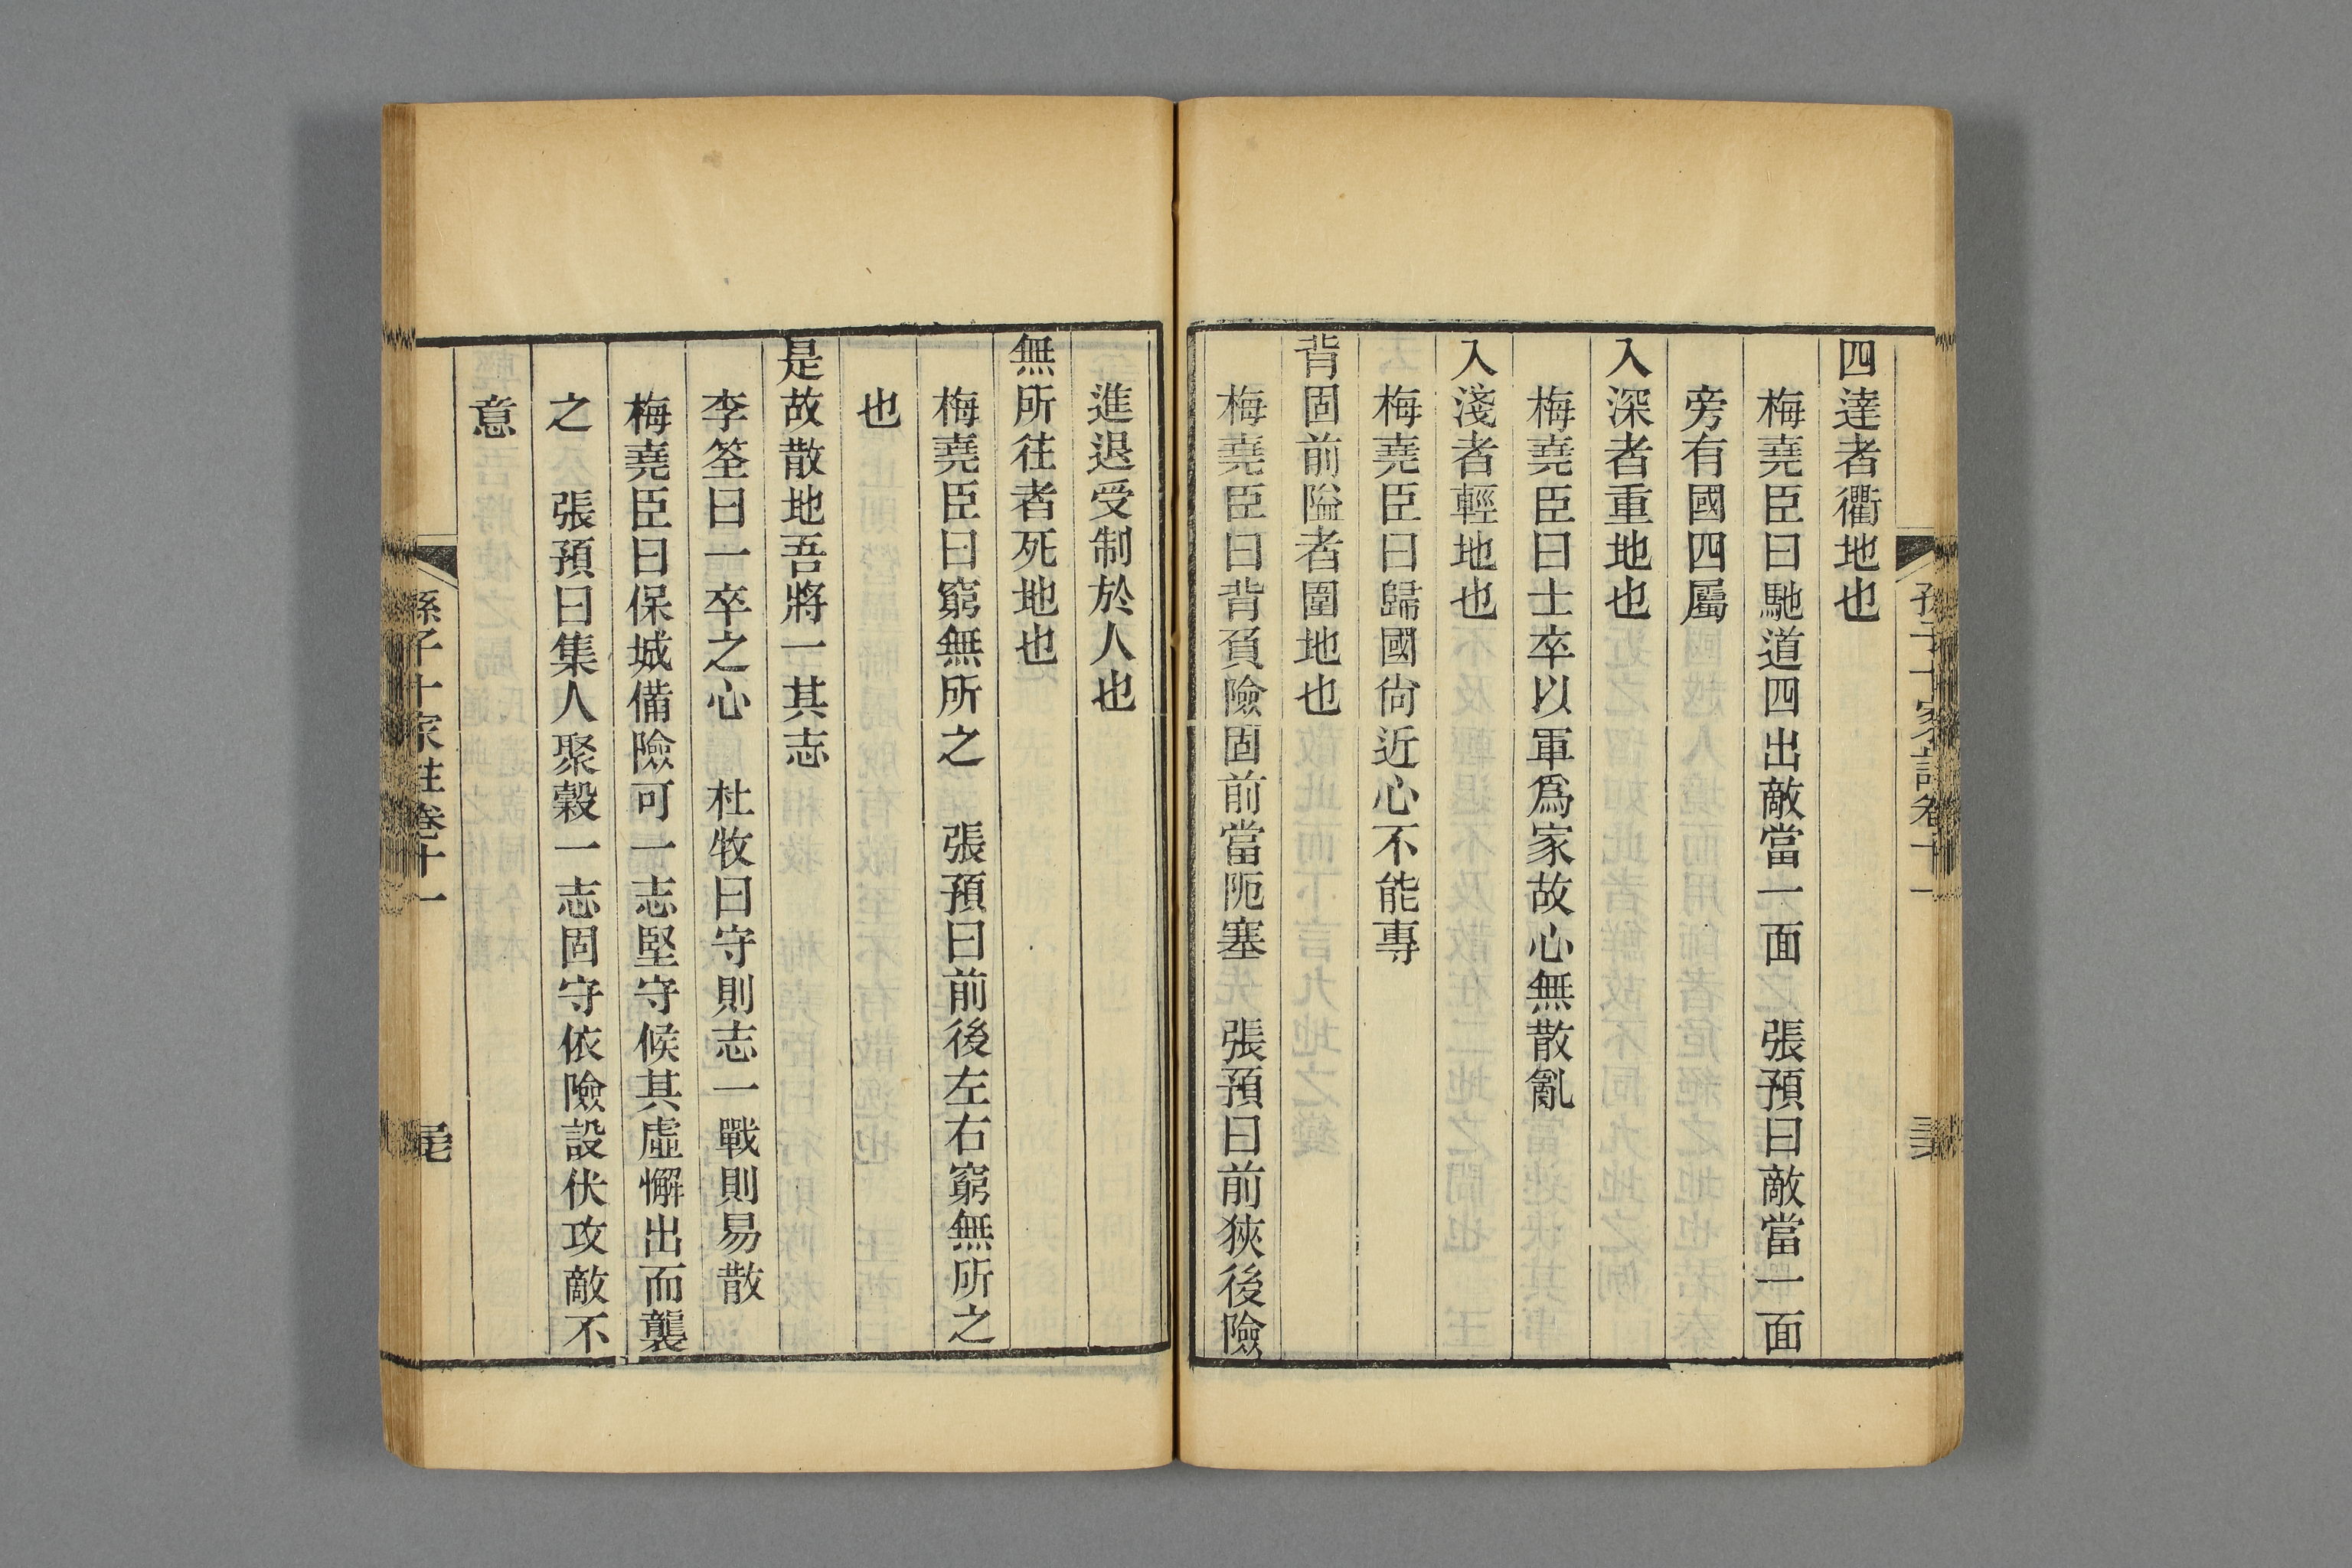 四達者衢地也
梅堯臣曰馳道四出敵當一面　張預曰敵當一面
旁有國四屬
入深者重地也
梅堯臣曰士卒以軍爲家故心無散亂
入淺者輕地也
梅堯臣曰歸國尙近心不能專
背固前隘者圍地也
梅堯臣曰背負險固前當阨塞　張預曰前狹後險
進退受制於人也
無所往者死地也
梅堯臣曰窮無所之　張預曰前後左右窮無所之
也
是故散地吾將一其志
李筌曰一卒之心　杜牧曰守則志一戰則易散
梅堯臣曰保城備險可一志堅守候其虛懈出而襲
之　張預曰集人聚穀一志固守依險設伏攻敵不
意
孫子十家註卷十一